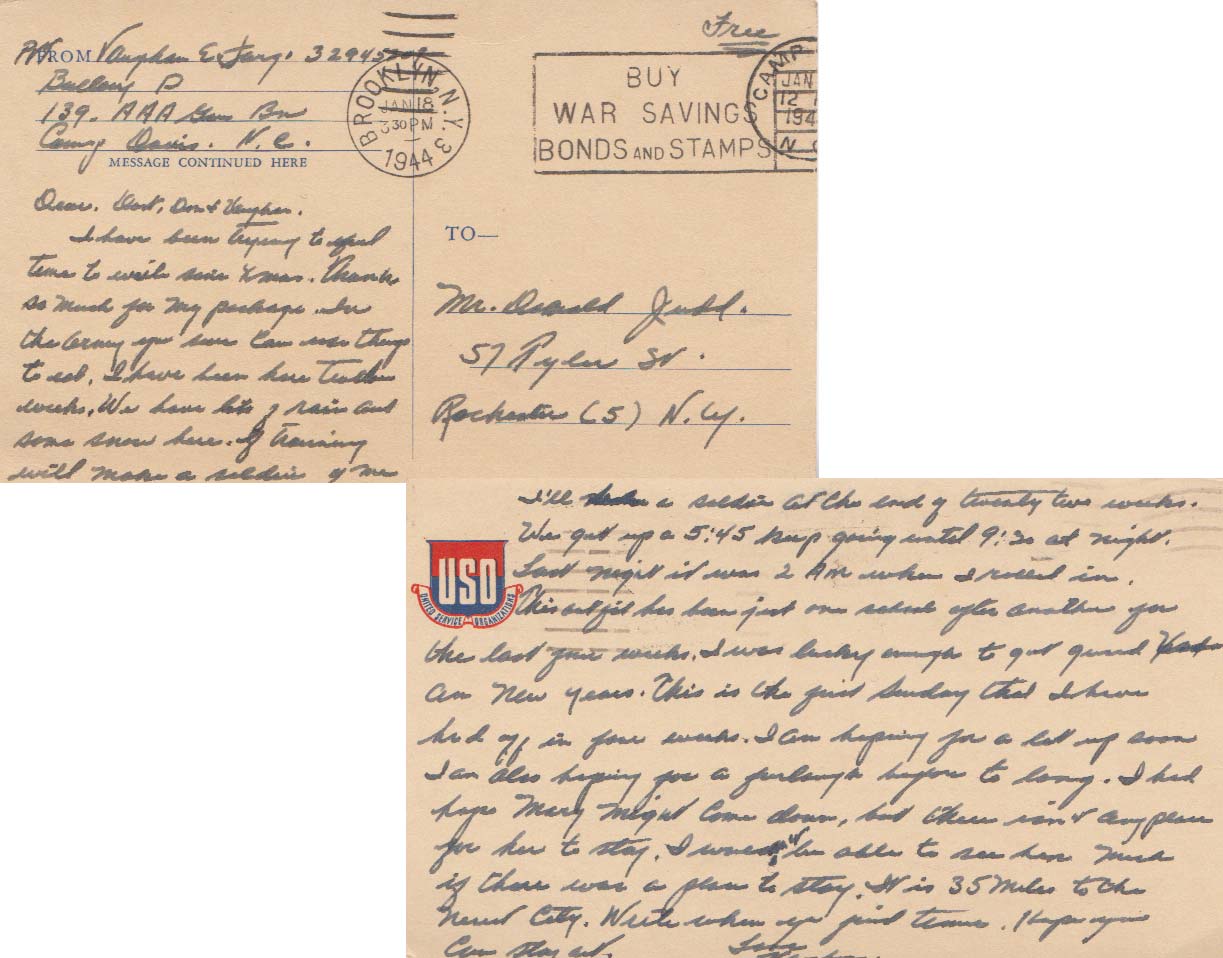 Free
FROM Pvt Vaughan E
Battery D
139. AAA Gun Bn
Camp Davis. N.C.
MESSAGE CONTINUED HERE
BROOKLYN, N.Y. 3
JAN 18
3 30 PM
1944
BUY
WAR SAVINGS
BONDS AND STAMPS
CAMP
JAN
12
194
N
Dear. Don & Vaughan.
I have been trying to find
time to write since Xmas. Thanks
so much for my package. In
the army you sure can use things
to eat. I have been here twelve
weeks. We have lots of rain and
some snow here. If training
will make a soldier of me
TO—
Mr. Donald Judd.
57 Tyler St.
Rochester (5) N.Y.
I'll be a soldier at the end of twenty two weeks.
We get up a 5:45 keep going until 9:30 at night.
Last night it was 2 AM when I rolled in.
USO
UNITED SERVICE ORGANIZATIONS
This outfit has been just one school after another for
the last four weeks. I was lucky enough to get guard
on New Years. This is the first Sunday that I have
had off in four weeks. I am hoping for a let up soon
I am also hoping for a furlough before to long. I had
hope Mary might come down, but there isn't any place
for her to stay. I be able to see her much
if there was a place to stay. It is 35 miles to the
nearest City. Write when you find time. I hope you
can stay out.
Love